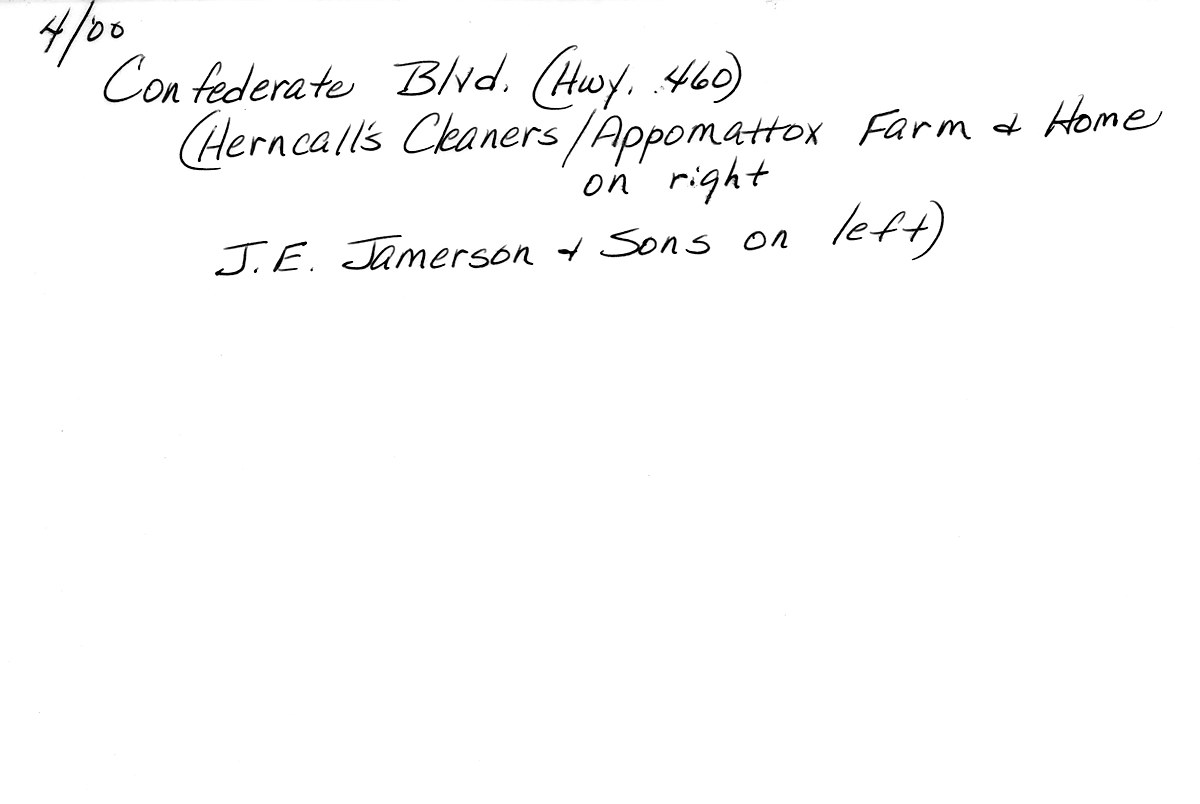 4/00
Confederate Blvd. (Hwy. 460)
(Herncall's Cleaners/Appomattox Farm & Home
on right
J.E. Jamerson & Sons on left)